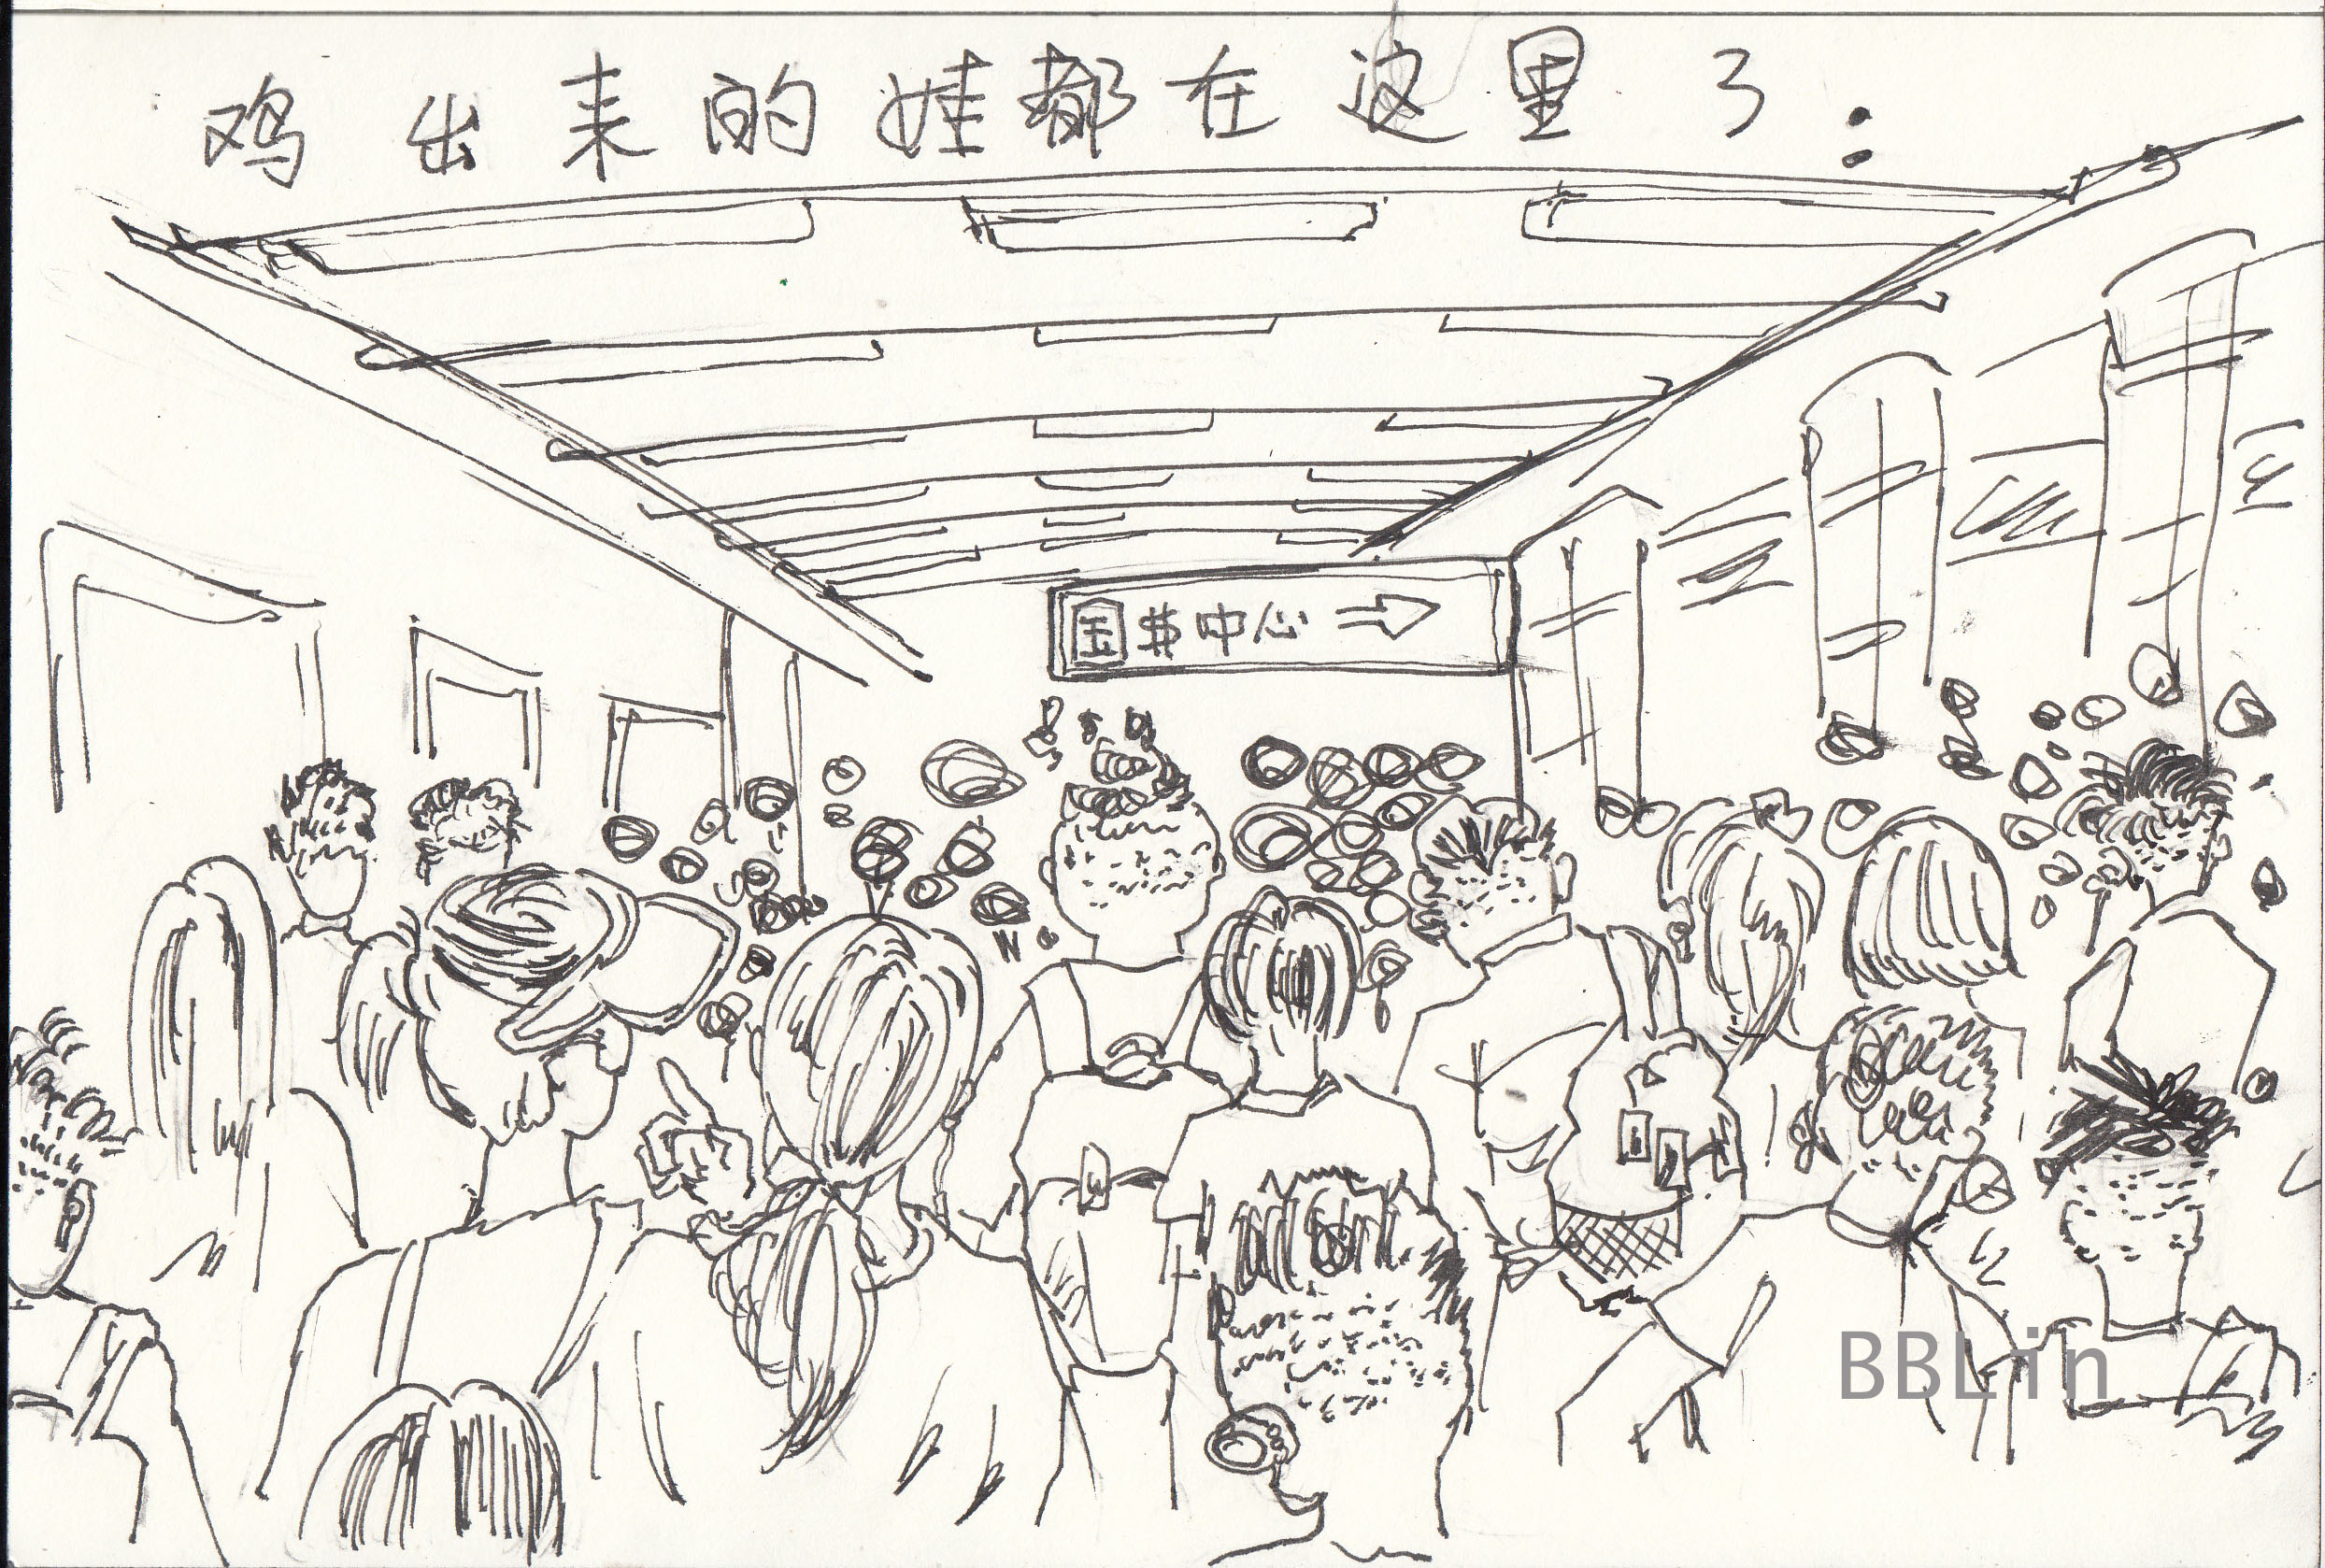 鸡出来的娃都在这里了：
国贸中心
BBLin